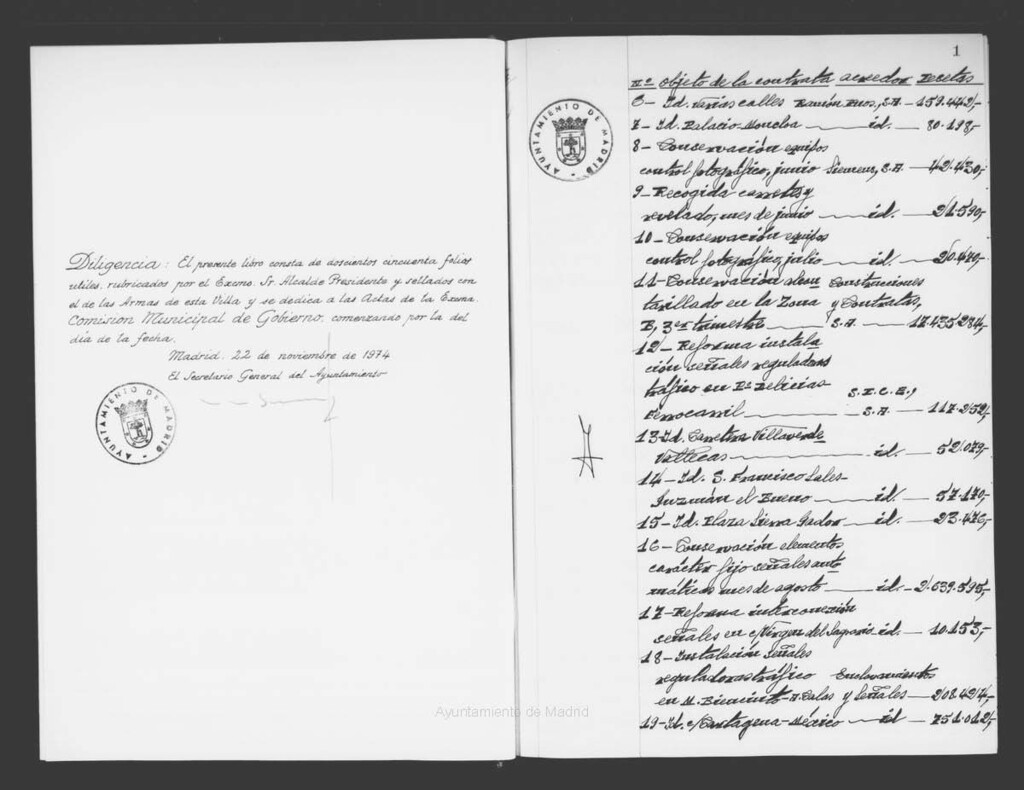 Diligencia: El presente libro consta de doscientos cincuenta folios
utiles, rubricados por el Excmo. Sr. Alcalde Presidente y sellados con
el de las Armas de esta Villa y se dedica a las Actas de la Excma.
Comision Municipal de Gobierno, comenzando por la del
día de la fecha.
Madrid, 22 de noviembre de 1974
El Secretario General del Ayuntamiento
AYUNTAMIENTO DE MADRID
AYUNTAMIENTO DE MADRID
1
Nº objeto de la contrata acreedor Pecetas
6- Id. varias calles Ramón Bros., S.A. - 159.442,-
7- Id. Palacio-Moncloa id. - 80.198,-
8- Conservación equipos
control fotográfico, junio Siemens, S.A. - 42.430,-
9- Recogida carretes y
revelado, mes de junio id. - 21.590,-
10- Conservación equipos
control fotográfico, julio id. - 20.440,-
11- Conservación alcan Construcciones
tarillado en la Zona y Contratas,
B, 3er trimestre S.A. - 17.435.284,-
12- Reforma instala
ción señales reguladoras
tráfico en Pº Delicias S.I.C.E.,
Ferrocarril S.A. - 117.252,-
13- Id. Carretera Villaverde
Vallecas id. - 52.079,-
14- Id. S. Francisco Sales-
Guzmán el Bueno id. - 57.170,-
15- Id. Plaza Sierra Gador id. - 23.476,-
16- Conservación elementos
carácter fijo señales auto
máticas mes de agosto id. - 2.639.595,-
17- Reforma interconexión
señales en c/Virgen del Sagrario id. - 10.153,-
18- Instalación señales
reguladoras tráfico Enclavamientos
en A. Calas y Señales - 208.424,-
19- Id. c/Cartagena-México id - 751.012,-
Ayuntamiento de Madrid